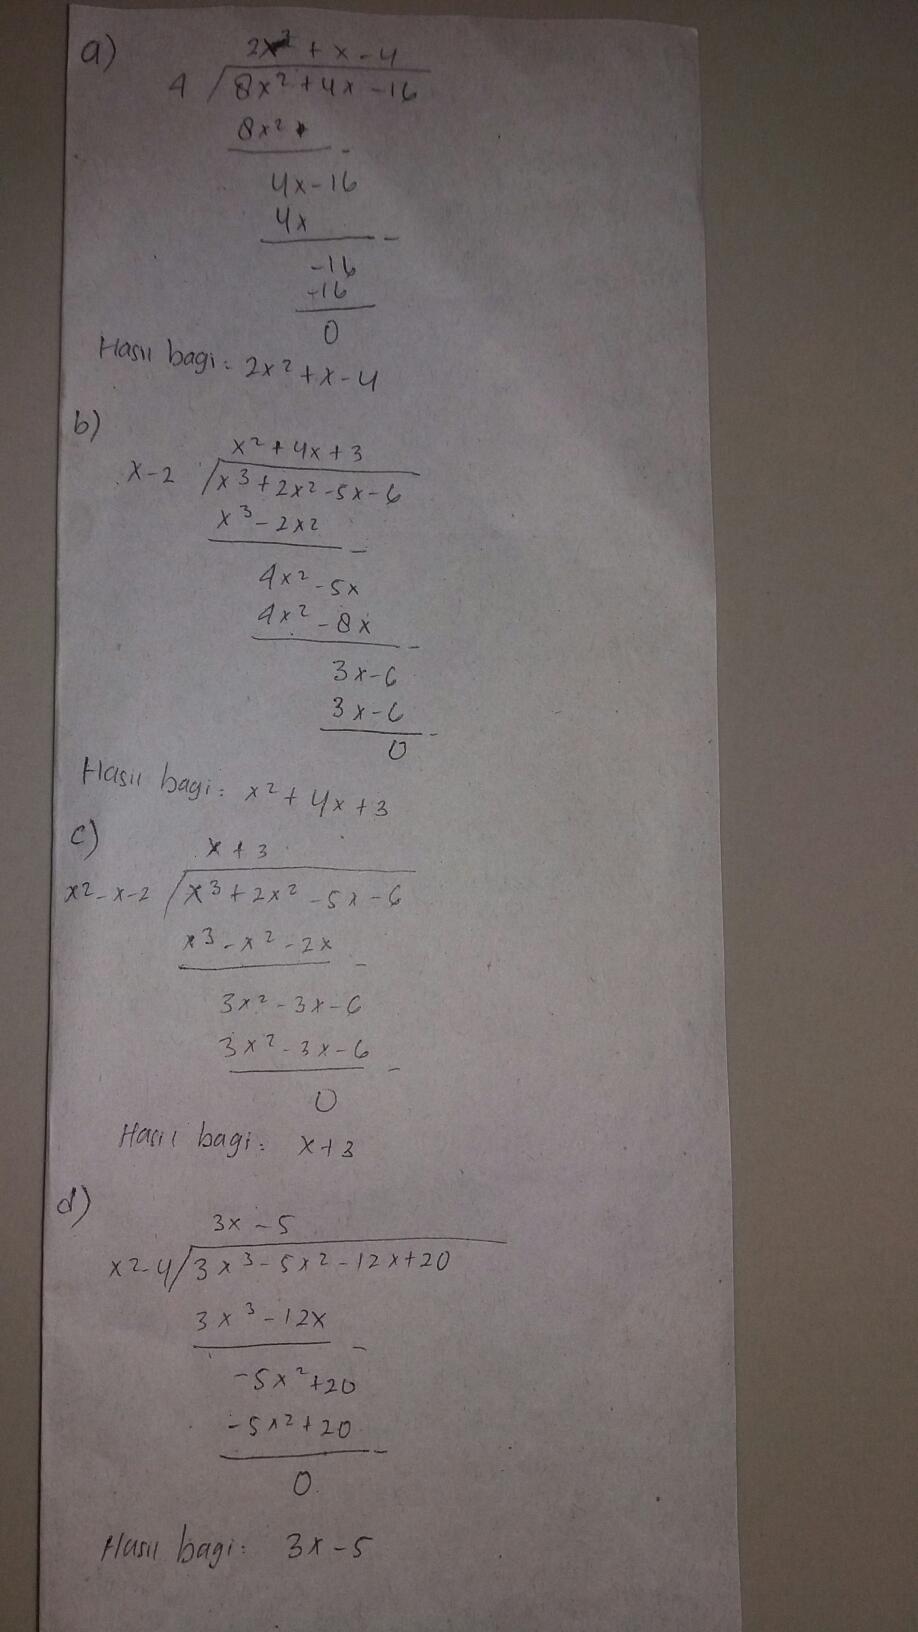 a)
2x² + x - 4
4 / 8x² + 4x - 16
8x²
-
4x - 16
4x
-
-16
-16
0
Hasil bagi: 2x² + x - 4
b)
x² + 4x + 3
x - 2 / x³ + 2x² - 5x - 6
x³ - 2x²
-
4x² - 5x
4x² - 8x
-
3x - 6
3x - 6
-
0
Hasil bagi: x² + 4x + 3
c)
x + 3
x² - x - 2 / x³ + 2x² - 5x - 6
x³ - x² - 2x
-
3x² - 3x - 6
3x² - 3x - 6
-
0
Hasil bagi: x + 3
d)
3x - 5
x² - 4 / 3x³ - 5x² - 12x + 20
3x³ - 12x
-
-5x² + 20
-5x² + 20
-
0
Hasil bagi: 3x - 5